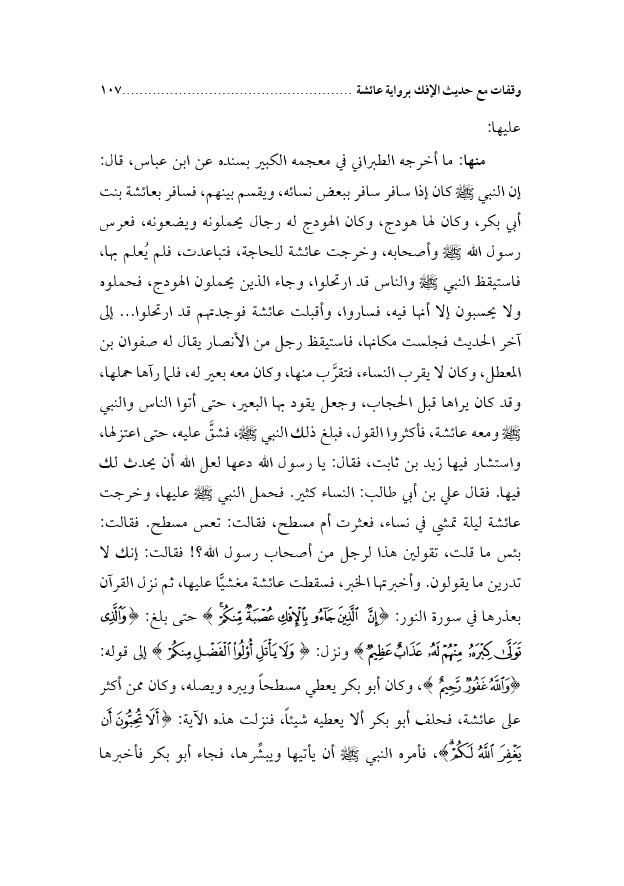 وقفات مع حديث الإفك برواية عائشة .....................................................١٠٧
عليها:
منها: ما أخرجه الطبراني في معجمه الكبير بسنده عن ابن عباس، قال:
إن النبي ﷺ كان إذا سافر سافر ببعض نسائه، ويقسم بينهم، فسافر بعائشة بنت
أبي بكر، وكان لها هودج، وكان الهودج له رجال يحملونه ويضعونه، فعرس
رسول الله ﷺ وأصحابه، وخرجت عائشة للحاجة، فتباعدت، فلم يُعلم بها،
فاستيقظ النبي ﷺ والناس قد ارتحلوا، وجاء الذين يحملون الهودج، فحملوه
ولا يحسبون إلا أنها فيه، فساروا، وأقبلت عائشة فوجدتهم قد ارتحلوا... إلى
آخر الحديث فجلست مكانها، فاستيقظ رجل من الأنصار يقال له صفوان بن
المعطل، وكان لا يقرب النساء، فتقرَّب منها، وكان معه بعير له، فلما رآها حملها،
وقد كان يراها قبل الحجاب، وجعل يقود بها البعير، حتى أتوا الناس والنبي
ﷺ ومعه عائشة، فأكثروا القول، فبلغ ذلك النبي ﷺ، فشقَّ عليه، حتى اعتزلها،
واستشار فيها زيد بن ثابت، فقال: يا رسول الله دعها لعل الله أن يحدث لك
فيها. فقال علي بن أبي طالب: النساء كثير. فحمل النبي ﷺ عليها، وخرجت
عائشة ليلة تمشي في نساء، فعثرت أم مسطح، فقالت: تعس مسطح. فقالت:
بئس ما قلت، تقولين هذا لرجل من أصحاب رسول الله؟! فقالت: إنك لا
تدرين ما يقولون. وأخبرتها الخبر، فسقطت عائشة مغشيًّا عليها، ثم نزل القرآن
بعذرها في سورة النور: ﴿إِنَّ ٱلَّذِينَ جَآءُو بِٱلْإِفْكِ عُصْبَةٌ مِّنكُمْ ۚ﴾ حتى بلغ: ﴿وَٱلَّذِى
تَوَلَّىٰ كِبْرَهُۥ مِنْهُمْ لَهُۥ عَذَابٌ عَظِيمٌ﴾ ونزل: ﴿وَلَا يَأْتَلِ أُو۟لُوا۟ ٱلْفَضْلِ مِنكُمْ﴾ إلى قوله:
﴿وَٱللَّهُ غَفُورٌ رَّحِيمٌ﴾، وكان أبو بكر يعطي مسطحاً ويبره ويصله، وكان ممن أكثر
على عائشة، فحلف أبو بكر ألا يعطيه شيئاً، فنزلت هذه الآية: ﴿أَلَا تُحِبُّونَ أَن
يَغْفِرَ ٱللَّهُ لَكُمْ ۗ﴾، فأمره النبي ﷺ أن يأتيها ويبشِّرها، فجاء أبو بكر فأخبرها